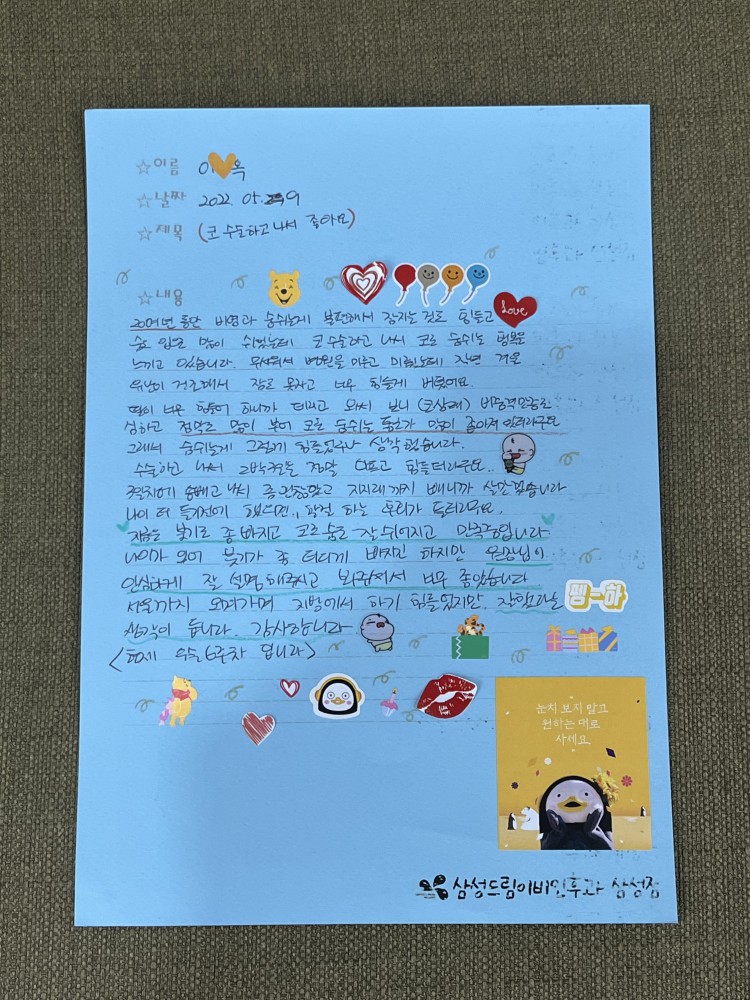 ☆이름 이 옥
☆날짜 2022. 05. 9
☆제목 (코 수술하고 나서 좋아요)
☆내용
Love
20여년 동안 비염과 숨쉬는게 불편해서 잠자는 것도 힘들고
숨도 입으로 많이 쉬었는데 코 수술하고 나서 코로 숨쉬는 행복을
느끼고 있습니다. 무서워서 병원을 미루고 미뤘는데 작년 겨울
유난히 건조해서 잠도 못자고 너무 힘들게 버텼어요.
딸이 너무 힘들어 하니까 데리고 와서 보니 (코상태) 비중격만곡도
심하고 점막도 많이 부어 코로 숨쉬는 통로가 많이 좁아져 있더라구요
그래서 숨쉬는게 그렇게 힘들었구나 생각했습니다.
수술하고 나서 2박3일은 정말 아프고 힘들더라구요..
솜빼고 나서 좀 괜찮았고 지지대까지 빼니까 살것같습니다
나이 더 들기전에 했으면, 하는 후회가 들더라구요.
지금은 붓기도 좀 빠지고 코로 숨도 잘 쉬어지고 만족중입니다
나이가 있어 붓기가 좀 더디게 빠지고 하지만 원장님이
안심하게 잘 설명해주시고 봐주셔서 너무 좋았습니다
오며가며 지방에서 하기 힘들었지만. 잘했다는
생각이 듭니다. 감사합니다
<현재 수술 6주차 입니다>
펭-하
눈치 보지 말고
원하는 대로
사세요.
삼성드림이비인후과 삼성점